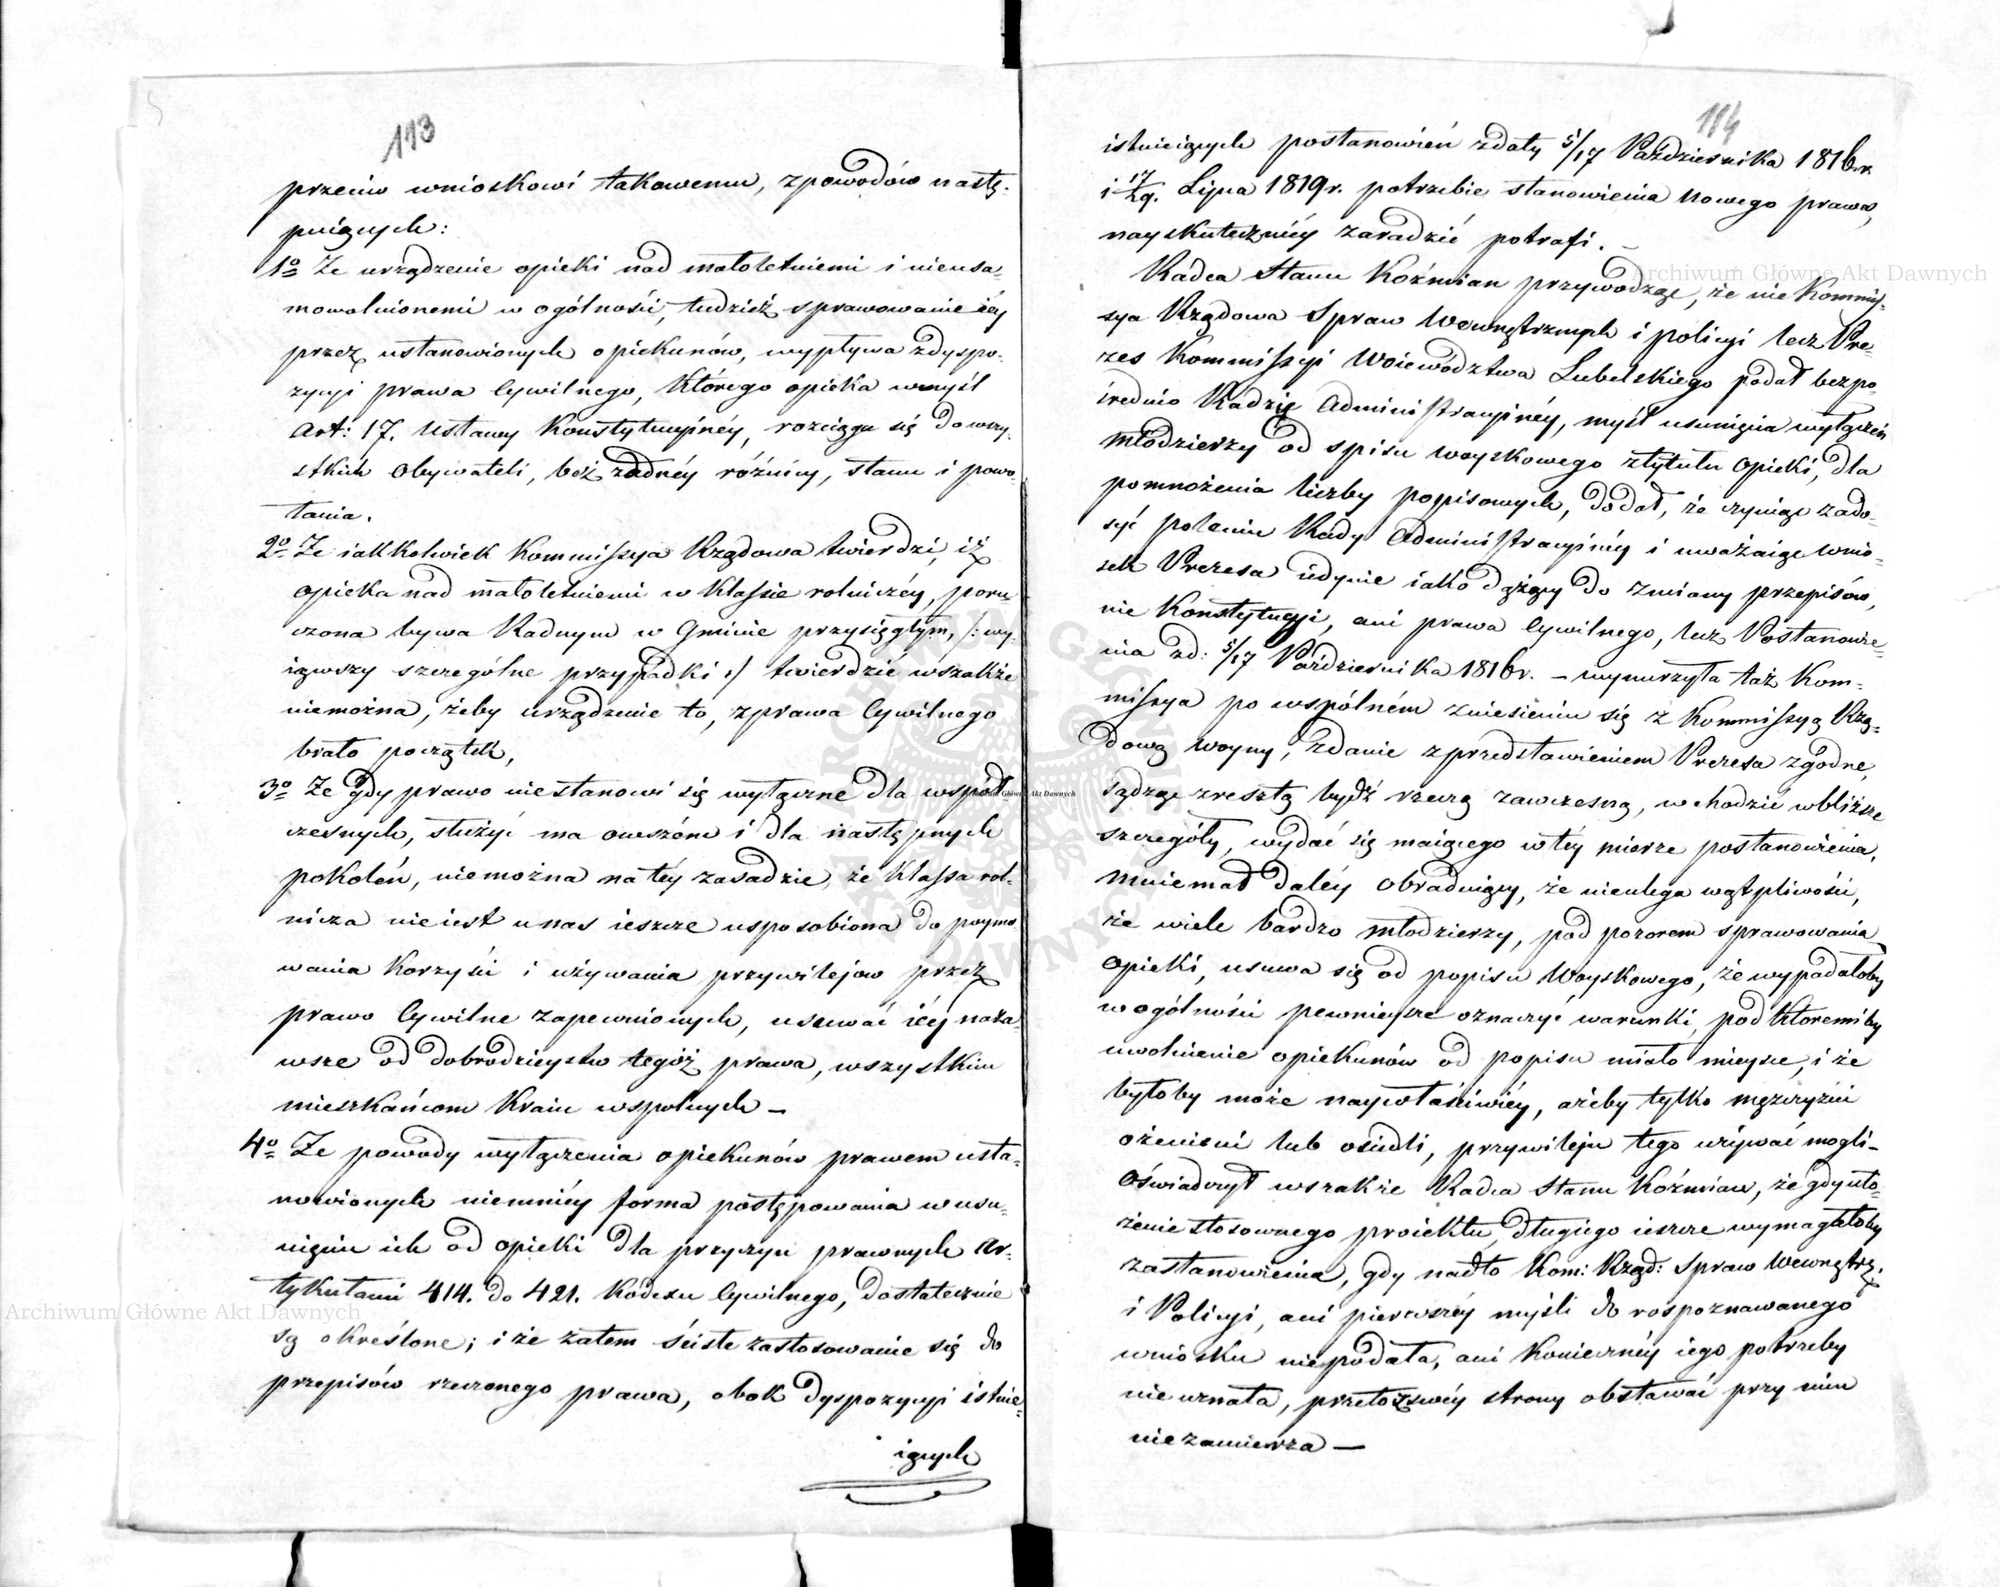 113
przeciw wnioskowi takowemu, z powodów nastę-
puiących:
1o Że urządzenie opieki nad małoletniemi i nieusa-
mowolnionemi w ogólności, tudzież sprawowanie iéy
przez ustanowionych opiekunów, wypływa z dyspo-
zycyi prawa Cywilnego, którego opieka w myśl
Art: 17. Ustawy Konstytucyinéy, rozciąga się do wszy-
stkich Obywateli, beż żadnéy różnicy, stanu i powo-
łania.
2o Że iakkolwiek Kommissya Rządowa twierdzi, iż
opieka nad małoletniemi w Klassie rolniczéy, poru-
czona bywa Radnym w Gminie przysięgłym, /: wy-
iąwszy szczególne przypadki :/ twierdzić wszakże
niemożna, żeby urządzenie to, z prawa Cywilnego
brało początek,
3o Że gdy prawo niestanowi się wyłącznie dla współ-
czesnych, służyć ma owszém i dla następnych
pokoleń, niemożna na téy zasadzie, że Klassa rol-
nicza nie iest u nas ieszcze usposobiona do poymo-
wania Korzyści i używania przywilejow przez
prawo Cywilne zapewnionych, usuwać iéy na za-
wsze od dobrodzieystw tegóż prawa, wszystkim
mieszkańcom Kraiu wspolnych —
4o Że powody wyłączenia opiekunów prawem usta-
nowionych niemniéy forma postępowania w usu-
nięciu ich od opieki dla przyczyn prawnych Ar-
tykułami 414. do 421. Kódexu Cywilnego, dostatecznie
są określone; i że zatem ściste zastosowanie się do
przepisów rzeczonego prawa, obok dyspozycyi istnie-
iących
114
istnieiących postanowień z daty 5/17 Października 1816.r.
i 17/29. Lipca 1819r. potrzebie stanowienia nowego prawa,
nayskuteczniéy zaradzić potrafi. —
Radca Stanu Koźmian przywodząc, że nie Kommis-
sya Rządowa Spraw Wewnętrznych i policyi lecz Pre-
zes Kommissyi Woiewództwa Lubelskiego podał bezpo-
średnio Radzie Administracyinéy, myśl usunięcia wyłączeń
młodzierzy od spisu woyskowego z tytułu opieki, dla
pomnożenia liczby popisowych, dodał, że czyniąc zado-
syć poleceniu Rady Administracyinéy i uważaiąc wnio-
sek Prezesa iedynie iako dążący do zmiany przepisów,
nie Konstytucyi, ani prawa Cywilnego, lecz Postanowie-
nia z d: 5/17 Października 1816r. — wynurzyła taż Kom-
missya po wspólném zniesieniu się z Kommissyą Rzą-
dową Woyny, zdanie z przedstawieniem Prezesa zgodne,
sądząc zresztą bydź rzeczą zawczesną, wchodzić w bliższe
szczegóły, wydać się maiącego w téy mierze postanowienia,
mniemał daléy Obraduiący, że nieulega wątpliwości,
że wiele bardzo młodzierzy, pod pozorem sprawowania
Opieki, usuwa się od popisu Woyskowego, że wypadałoby
w ogólności pewnieysze oznaczyć warunki, pod któremiby
uwolnienie opiekunów od popisu miało mieysce, i że
byłoby może naywłaściwiéy, ażeby tylko mężczyźni
ożenieni lub osiedli, przywileju tego używać mogli —
Oświadczył wszakże Radca Stanu Koźmian, że gdy uło-
żenie stosownego proiektu, długiego ieszcze wymagałoby
zastanowienia, gdy nadto Kom: Rząd: Spraw Wewnętrz.
i Policyi, ani pierwszéy myśli do rospoznawanego
wniosku niepodała, ani Koniecznéy iego potrzeby
nie uznała, przeto z swéy strony obstawać przy nim
niezamierza —
Archiwum Główne Akt Dawnych
Archiwum Główne Akt Dawnych
Archiwum Główne Akt Dawnych